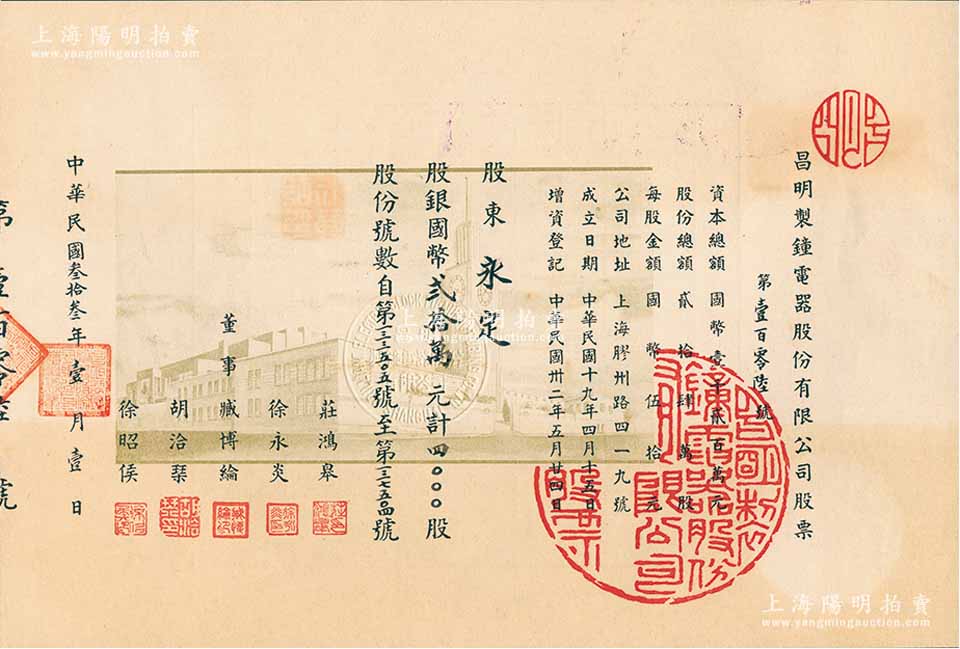 昌明製鐘電器股份有限公司股票
第壹百零陸號
資本總額 國幣壹千貳百萬元
股份總額 貳拾肆萬股
每股金額 國幣伍拾元
公司地址 上海膠州路四一九號
成立日期 中華民國十九年四月十五日
增資登記 中華民國卅二年五月廿四日
股東 永定
股銀國幣弐拾萬元計四〇〇〇股
股份號數自第號至第號
董事
莊鴻皋
徐永炎
臧博綸
胡洽琹
徐昭侯
中華民國叁拾叁年壹月壹日
第壹百零陸號
上海陽明拍賣
www.yangmingauction.com
上海陽明拍賣
www.yangmingauction.com
上海陽明拍賣
www.yangmingauction.com